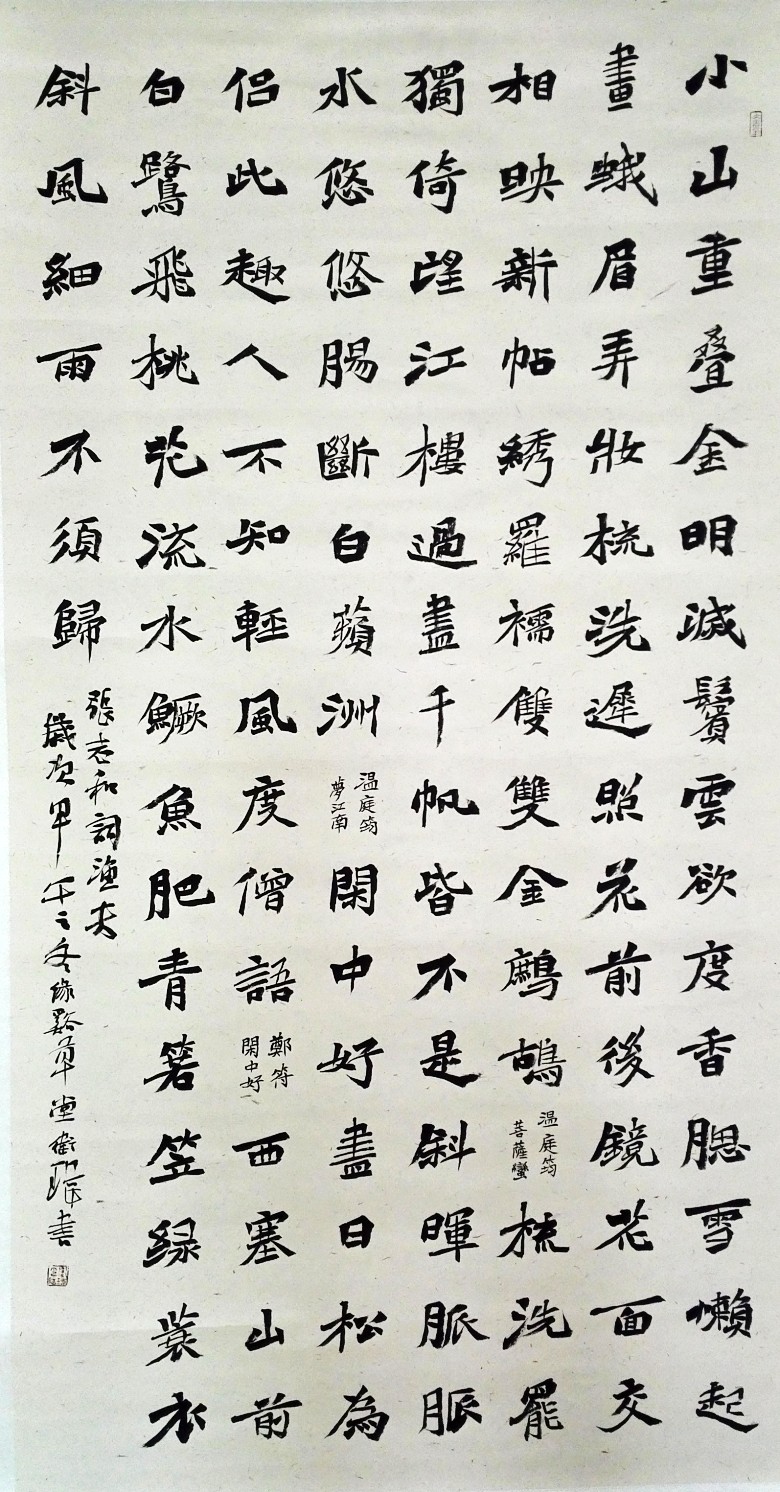 小山重叠金明滅鬢雲欲度香腮雪懶起
畫蛾眉弄妝梳洗遲照花前後鏡花面交
相映新帖綉羅襦雙雙金鷓鴣
温庭筠
菩薩蠻
梳洗罷
獨倚望江樓過盡千帆皆不是斜暉脈脈
水悠悠腸斷白蘋洲
温庭筠
夢江南
閑中好盡日松為
侣此趣人不知輕風度僧語
鄭符
閑中好
西塞山前
白鷺飛桃花流水鱖魚肥青箬笠緑蓑衣
斜風細雨不須歸
張志和詞漁夫
歲次甲午之冬緑谿草堂
書